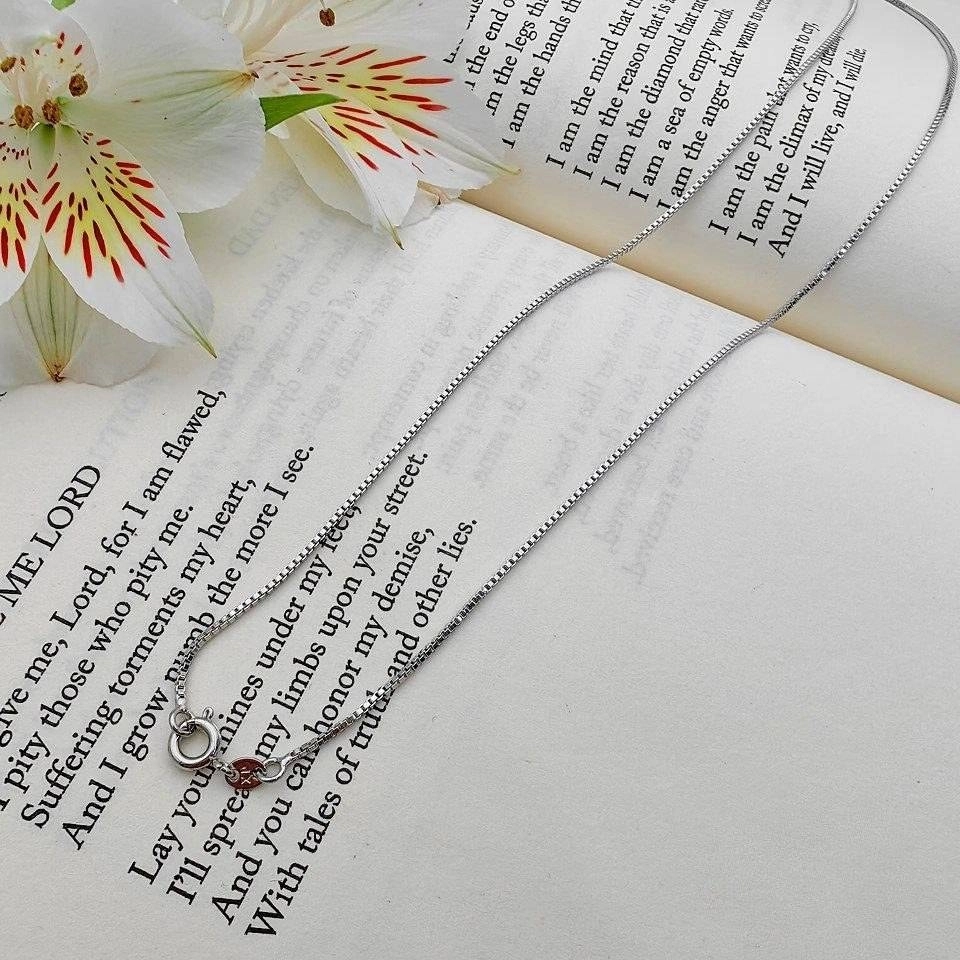 the end of
I am the legs tha
I am the hands th
I am the mind that th
I am the reason that is
I am the diamond that rat
I am a sea of empty words.
I am the anger that wants to
I am the pain that wants to cry,
I am the climax of my dreams
And I will live, and I will die.
ME LORD
give me, Lord, for I am flawed,
I pity those who pity me.
Suffering torments my heart,
And I grow numb the more I see.
Lay your mines under my feet,
I'll spread my limbs upon your street.
And you can honor my demise,
With tales of truth and other lies.